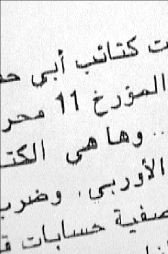 ت كتائب أبي
المؤرخ 11 محر
.. وها هي الكت
الأوربي، وضرب
صفية حسابات ق